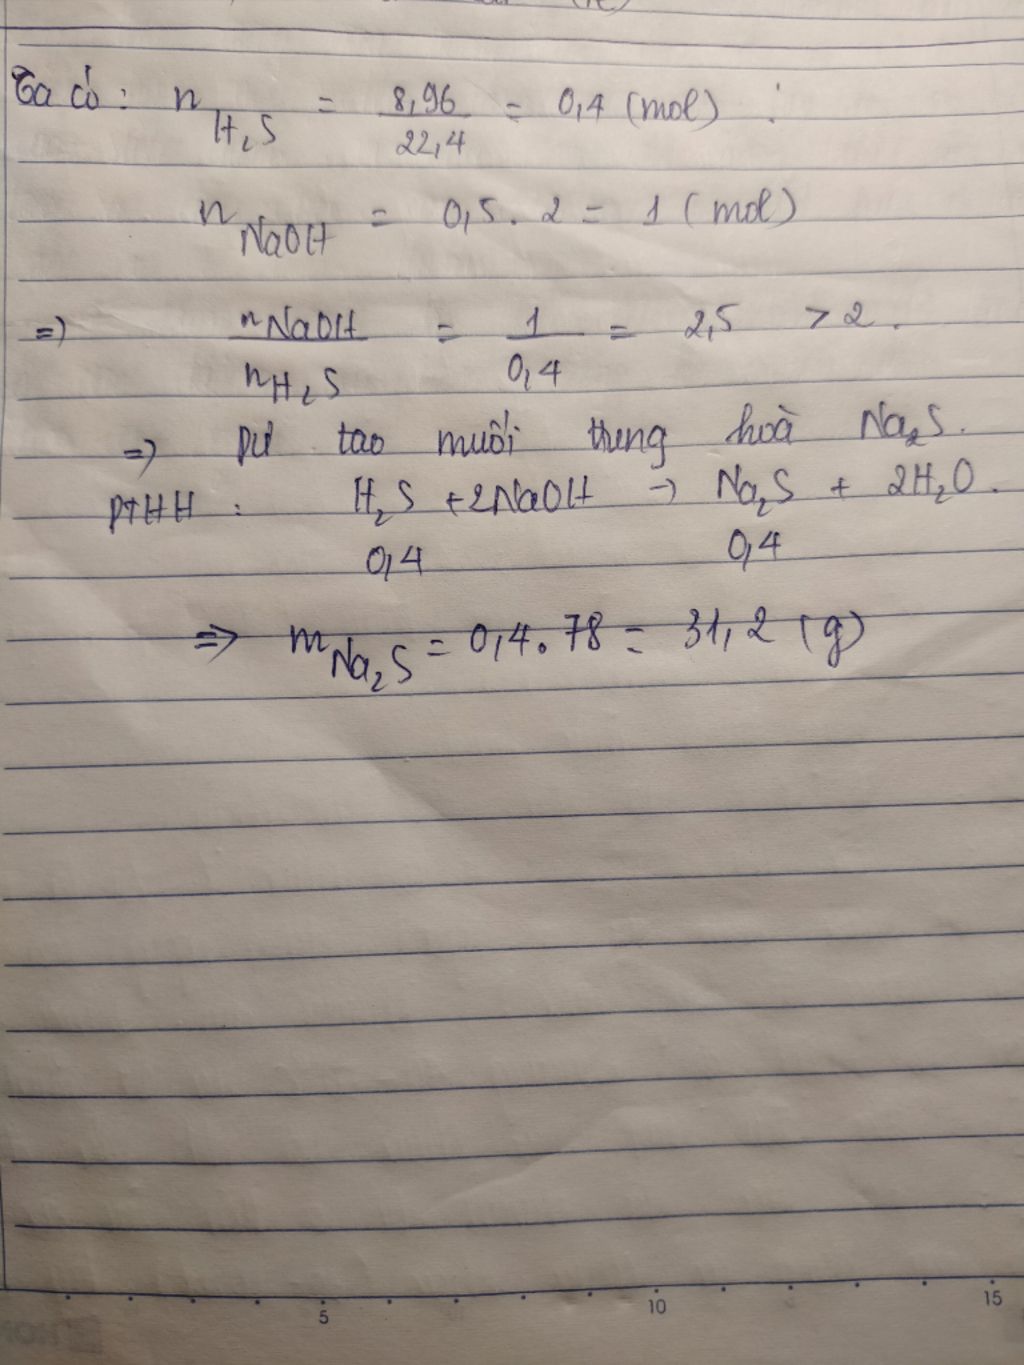 Ta có : n H₂S = 8,96 / 22,4 = 0,4 (mol) :
n NaOH = 0,5 . 2 = 1 (mol)
=) nNaOH / nH₂S = 1 / 0,4 = 2,5 > 2 .
=) Pư tao muối trung hoà Na₂S.
PTHH : H₂S + 2NaOH → Na₂S + 2H₂O .
0,4 0,4
=> m Na₂S = 0,4 . 78 = 31,2 (g)
5 10 15